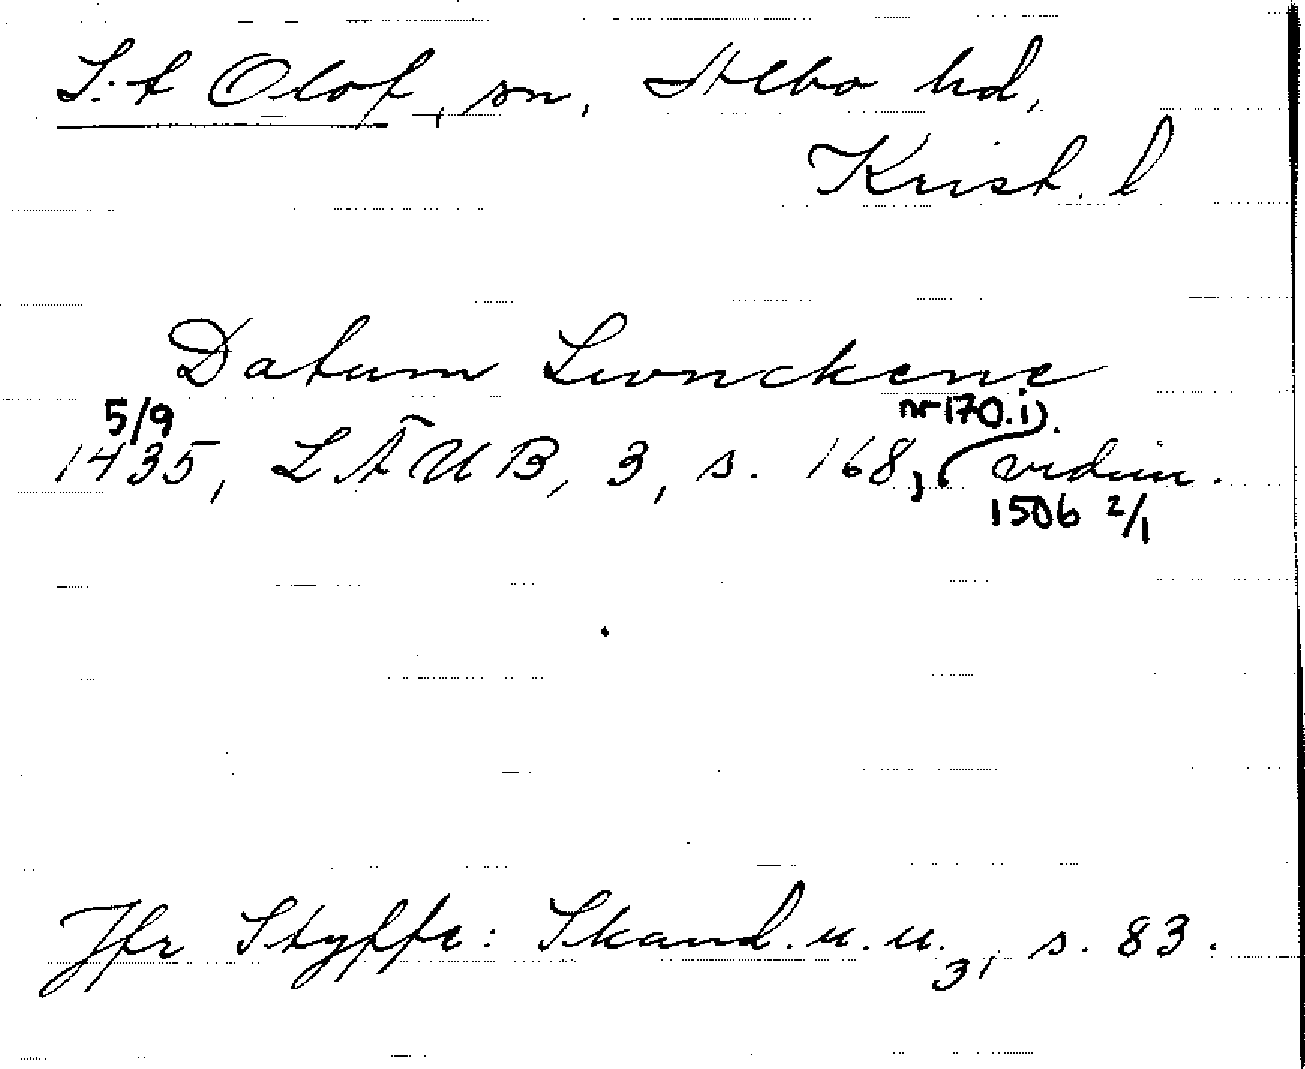 S:t Olof, sn, Albo hd,
Krist. l
Datum Lwnckene
5/9 nr 170. i).
1435, LÄUB, 3, s. 168, vidim.
1506 2/1
Jfr Styffe: Skand. u. u. 3, s. 83.